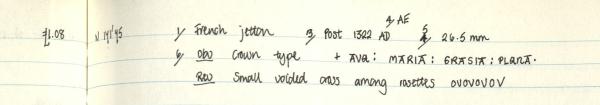 4, AE
£1.08 N 141'95 1, French jetton 3, Post 1322 AD 5, 26.5 mm
6, Obv Crown type + AVa: MARIA: GRASIA: PLANA.
Rev Small voided cross among rosettes OVOVOVOV